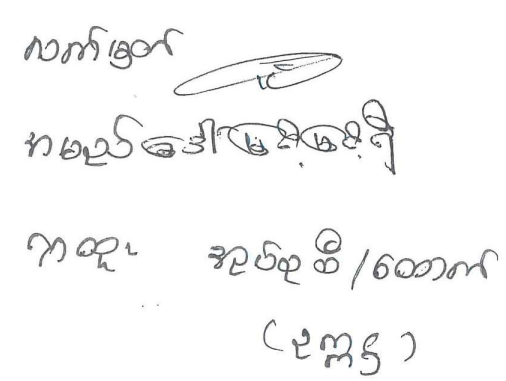 လက်မှတ်
အမည် ဒေါ်မြင့်မြင့်ရီ
ရာထူး အုပ်စုမှူး/ထောက်
(ဥက္ကဋ္ဌ)